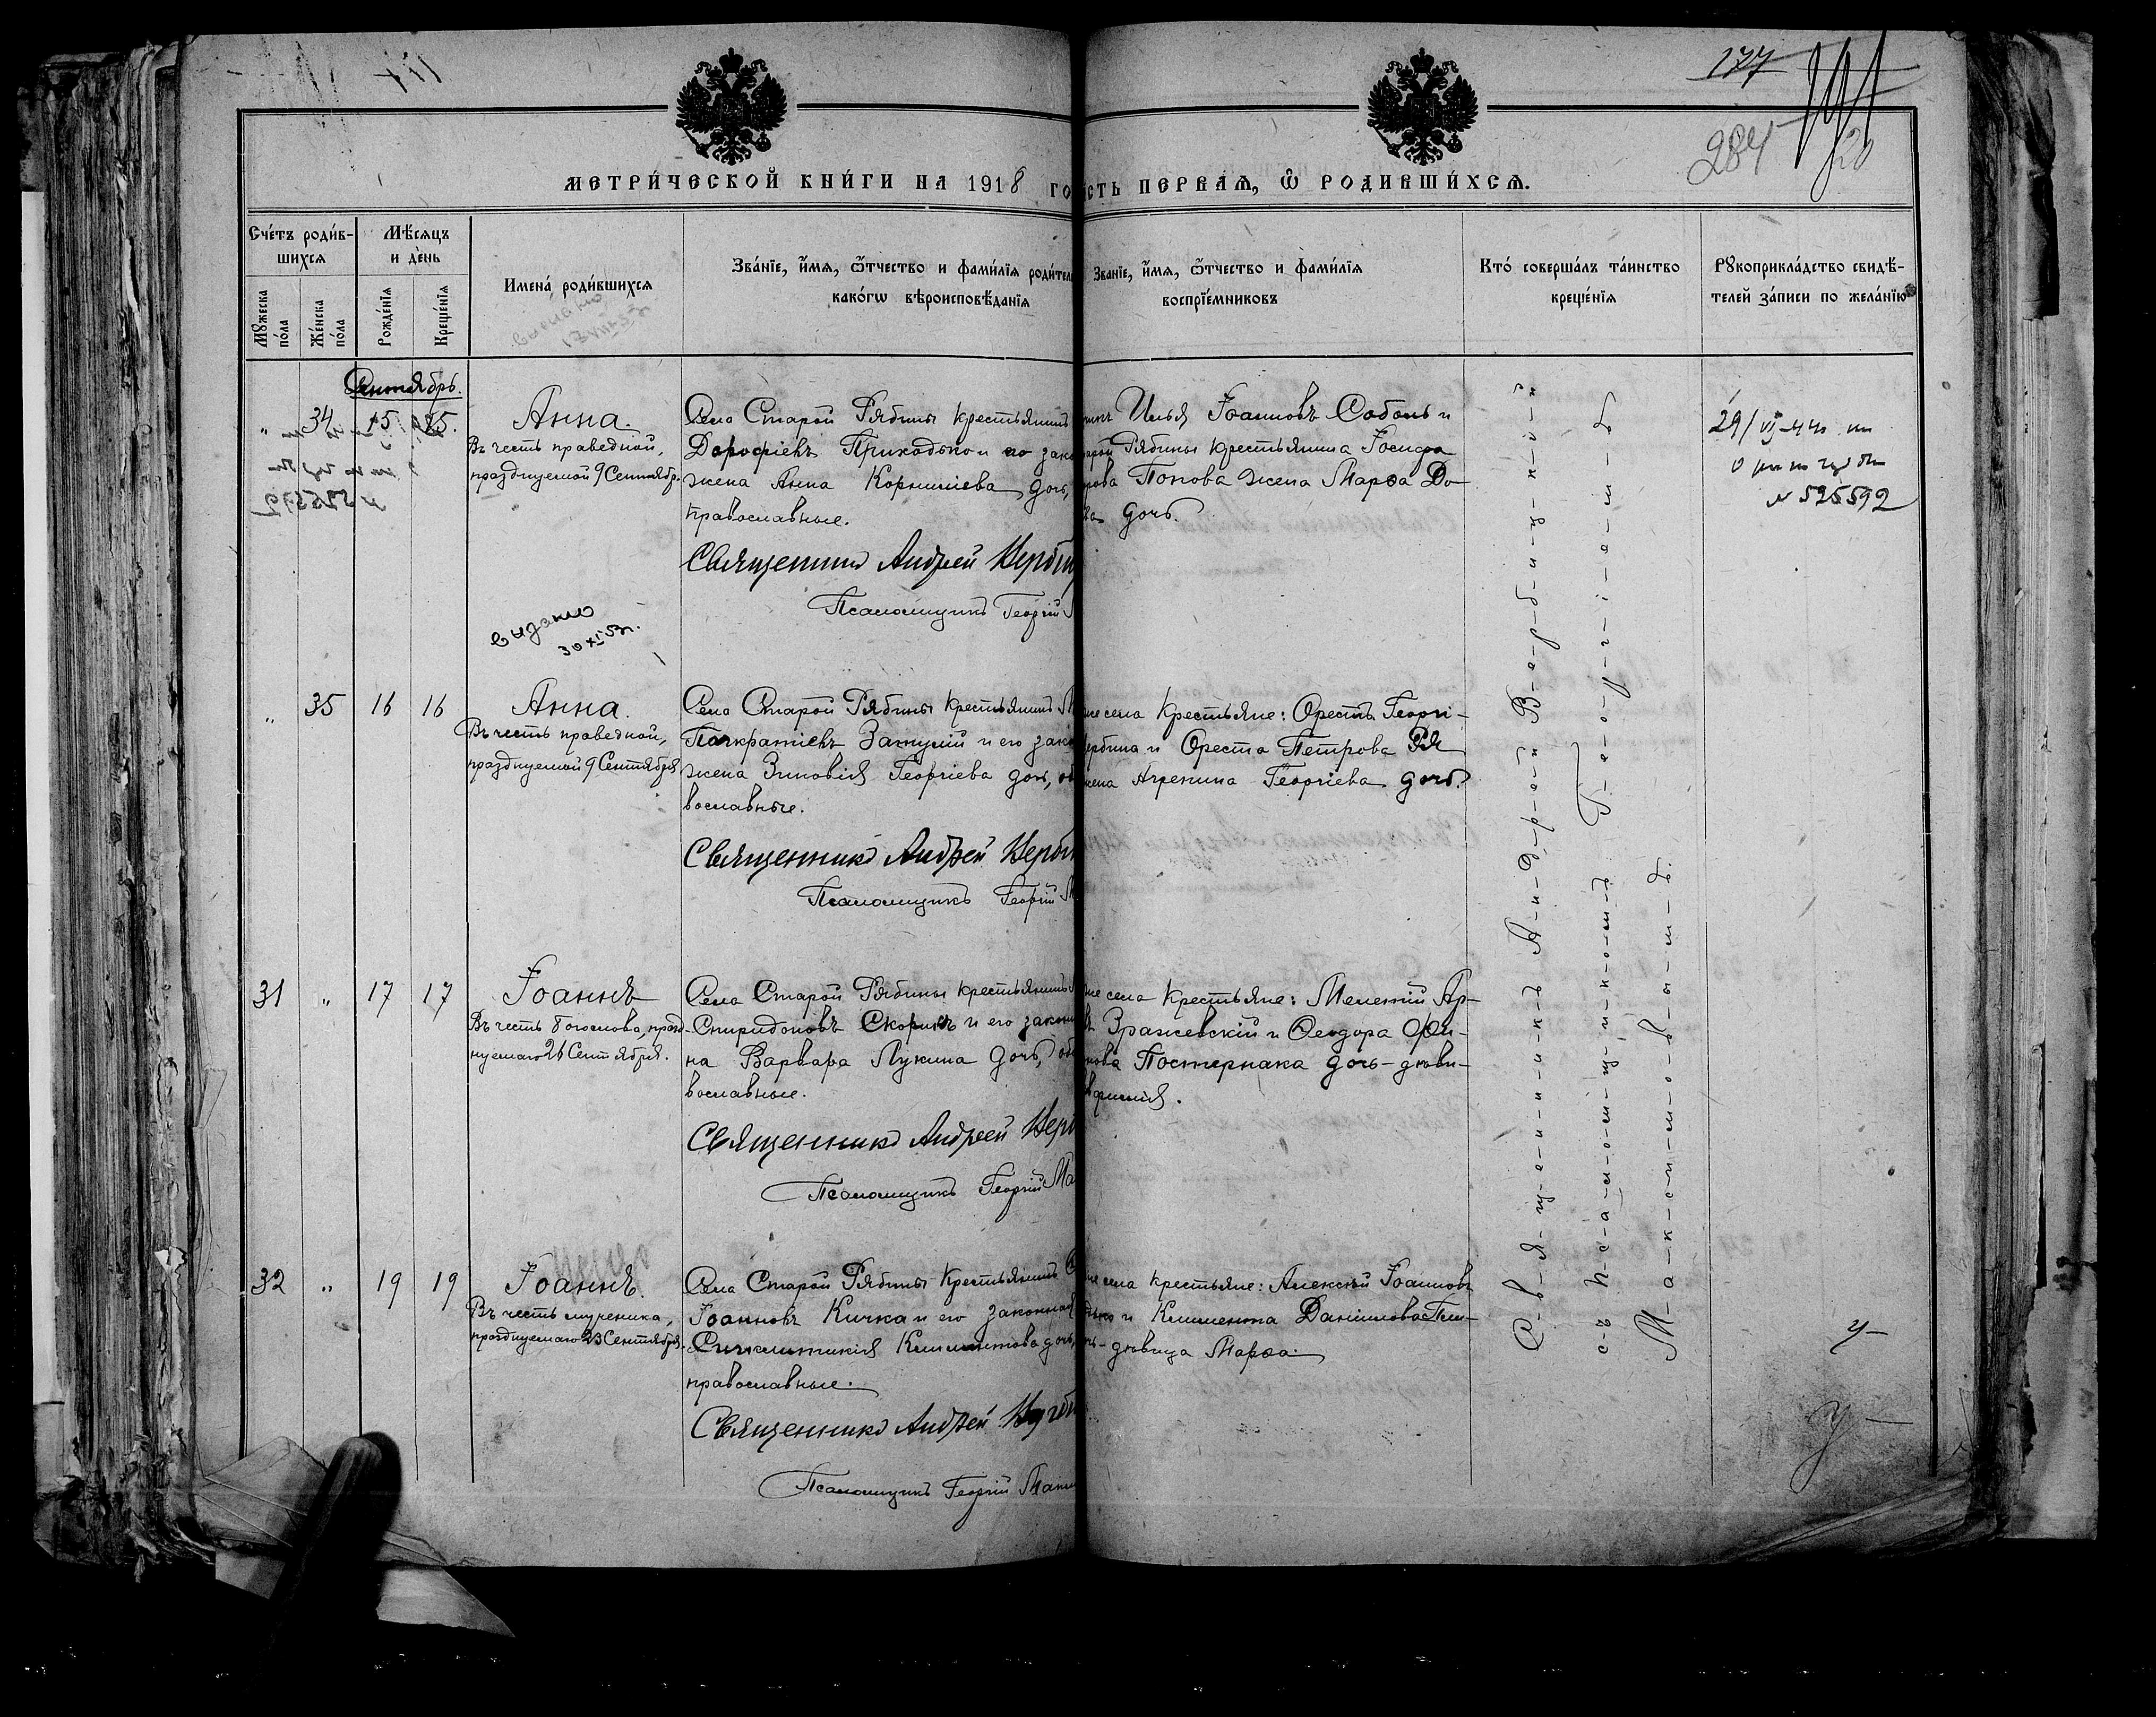 177
284
20
МЕТРИ́ЧЕСКОЙ КНИ́ГИ НА 1918 ГО
СТЬ ПЕРВАѦ, Ѽ РОДИВШИ́ХСѦ.
Сче́тъ роди́в-
шихсѧ
Мꙋжеска по́ла
Же́нска по́ла
Мѣ́сѧцъ
и де́нь
Рожде́нїѧ
Креще́нїѧ
Имена́ роди́вшихсѧ
Зва́нїе, и҆́мѧ, ѻ҆́тчество и фами́лїѧ роди́тел
како́гѡ вѣроисповѣ́данїѧ
Зва́нїе, и҆́мѧ, ѻ҆́тчество и фами́лїѧ
воспрїе́мниковъ
Кто́ соверша́лъ та́инство
креще́нїѧ
Рꙋкоприкла́дство свидѣ́-
телей за́писи по жела́нїю
Сентябрь.
" 34 15 15.
Анна.
Въ честь праведной,
празднуемой 9 Сентябр.
Села Старой Рябины крестьянинъ
Дорофіевъ Приходько и его зако
жена Анна Корниліева дочь,
православные.
Священникъ Андрей Верби
Псаломщикъ Георгій
Илья Іоанновъ Соболь и
Рябины крестьянина Іосифа
Попова жена Марѳа До-
дочь.
№ 525592
выдано
30 XI 53г.
" 35 16 16
Анна.
Въ честь праведной,
празднуемой 9 Сентября
Села Старой Рябины крестьянинъ
Панкратіевъ Зацупій и его зако
жена Зиновія Георгіева дочь, об
вославные.
Священникъ Андрей Верби
Псаломщикъ Георгій М
же села Крестьяне: Орестъ Георгі-
ербина и Ореста Петрова Ря
жена Агрепина Георгіева дочь.
31 " 17 17
Іоаннъ
Въ честь Богослова, празд-
нуемаго 26 Сентября.
Села Старой Рябины крестьянинъ
Спиридоновъ Скорикъ и его закон
на Варвара Лукина дочь, об
вославные.
Священникъ Андрей Верб
Псаломщикъ Георгій Ма
же села Крестьяне: Мелетій Ар-
въ Зражевскій и Ѳеодора
нова Постернака дочь-дѣви-
32 " 19 19
Іоаннъ.
Въ честь мученика,
празднуемаго 23 Сентября.
Села Старой Рябины Крестьянинъ
Іоанновъ Кичка и его законная
Синклитикія Климентова дочь,
православные.
Священникъ Андрей Верби
Псаломщикъ Георгій Макси
же села крестьяне: Алексѣй Іоанновъ
и Климента Даніилова
чь-дѣвица Марѳа.
С-в-я-щ-е-н-н-и-к-ъ А-н-д-р-е-й В-е-р-б-и-ц-к-і-й
с-ъ п-с-а-л-о-м-щ-и-к-о-м-ъ Г-е-о-р-г-і-е-м-ъ
М-а-к-с-и-м-о-в-ы-м-ъ.